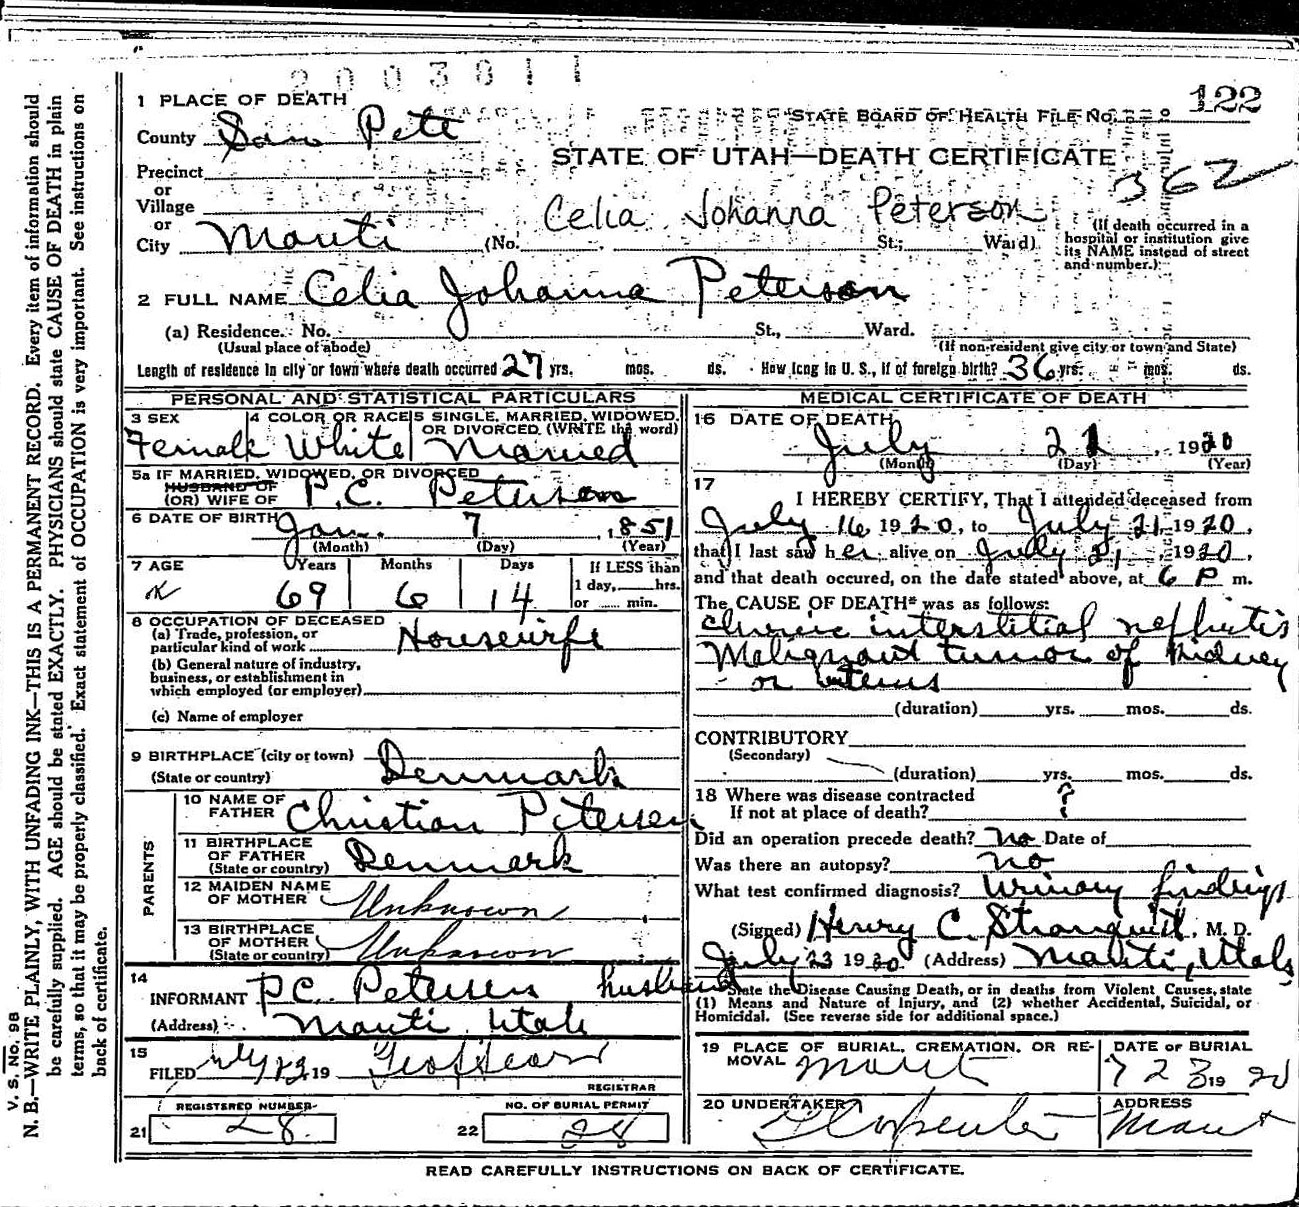 2003811
122
1 PLACE OF DEATH
STATE BOARD OF HEALTH FILE No.
County San Pete
STATE OF UTAH—DEATH CERTIFICATE
362
Precinct
or
Village
or
City Manti (No. St.; Ward)
Celia Johanna Peterson
(If death occurred in a
hospital or institution give
its NAME instead of street
and number.)
2 FULL NAME Celia Johanna Peterson
(a) Residence. No. St., Ward.
(Usual place of abode) (If non-resident give city or town and State)
Length of residence in city or town where death occurred 27 yrs. mos. ds. How long in U. S., if of foreign birth? 36 yrs. mos. ds.
PERSONAL AND STATISTICAL PARTICULARS
3 SEX
Female
4 COLOR OR RACE
White
5 SINGLE, MARRIED, WIDOWED,
OR DIVORCED (WRITE the word)
Married
5a IF MARRIED, WIDOWED, OR DIVORCED
HUSBAND OF
(OR) WIFE OF P.C. Peterson
6 DATE OF BIRTH Jan. 7, 1851
(Month) (Day) (Year)
7 AGE Years Months Days If LESS than
1 day, hrs.
or min.
69 6 14
8 OCCUPATION OF DECEASED
(a) Trade, profession, or
particular kind of work Housewife
(b) General nature of industry,
business, or establishment in
which employed (or employer)
(c) Name of employer
9 BIRTHPLACE (city or town)
(State or country) Denmark
PARENTS
10 NAME OF
FATHER Christian Petersen
11 BIRTHPLACE
OF FATHER
(State or country) Denmark
12 MAIDEN NAME
OF MOTHER Unknown
13 BIRTHPLACE
OF MOTHER
(State or country) Unknown
14
INFORMANT P.C. Petersen husband
(Address) Manti Utah
15
FILED July 23, 19
REGISTRAR
REGISTERED NUMBER
21 28
NO. OF BURIAL PERMIT
22 28
MEDICAL CERTIFICATE OF DEATH
16 DATE OF DEATH
July 21, 1920
(Month) (Day) (Year)
17
I HEREBY CERTIFY, That I attended deceased from
July 16 1920, to July 21 1920,
that I last saw her alive on July 21, 1920,
and that death occured, on the date stated above, at 6 P m.
The CAUSE OF DEATH* was as follows:
chronic interstitial nephritis
Malignant tumor of kidney
or uterus
(duration) yrs. mos. ds.
CONTRIBUTORY
(Secondary)
(duration) yrs. mos. ds.
18 Where was disease contracted
If not at place of death? ?
Did an operation precede death? No Date of
Was there an autopsy? no
What test confirmed diagnosis? Urinary findings
(Signed) Henry C. Stranquist, M. D.
July 23 1920 (Address) Manti, Utah
*State the Disease Causing Death, or in deaths from Violent Causes, state
(1) Means and Nature of Injury, and (2) whether Accidental, Suicidal, or
Homicidal. (See reverse side for additional space.)
19 PLACE OF BURIAL, CREMATION, OR RE-
MOVAL Manti
DATE OF BURIAL
7 23 1920
20 UNDERTAKER
ADDRESS
Manti
READ CAREFULLY INSTRUCTIONS ON BACK OF CERTIFICATE.
V. S. NO. 98
N. B.—WRITE PLAINLY, WITH UNFADING INK—THIS IS A PERMANENT RECORD. Every item of information should
be carefully supplied. AGE should be stated EXACTLY. PHYSICIANS should state CAUSE OF DEATH in plain
terms, so that it may be properly classified. Exact statement of OCCUPATION is very important. See instructions on
back of certificate.